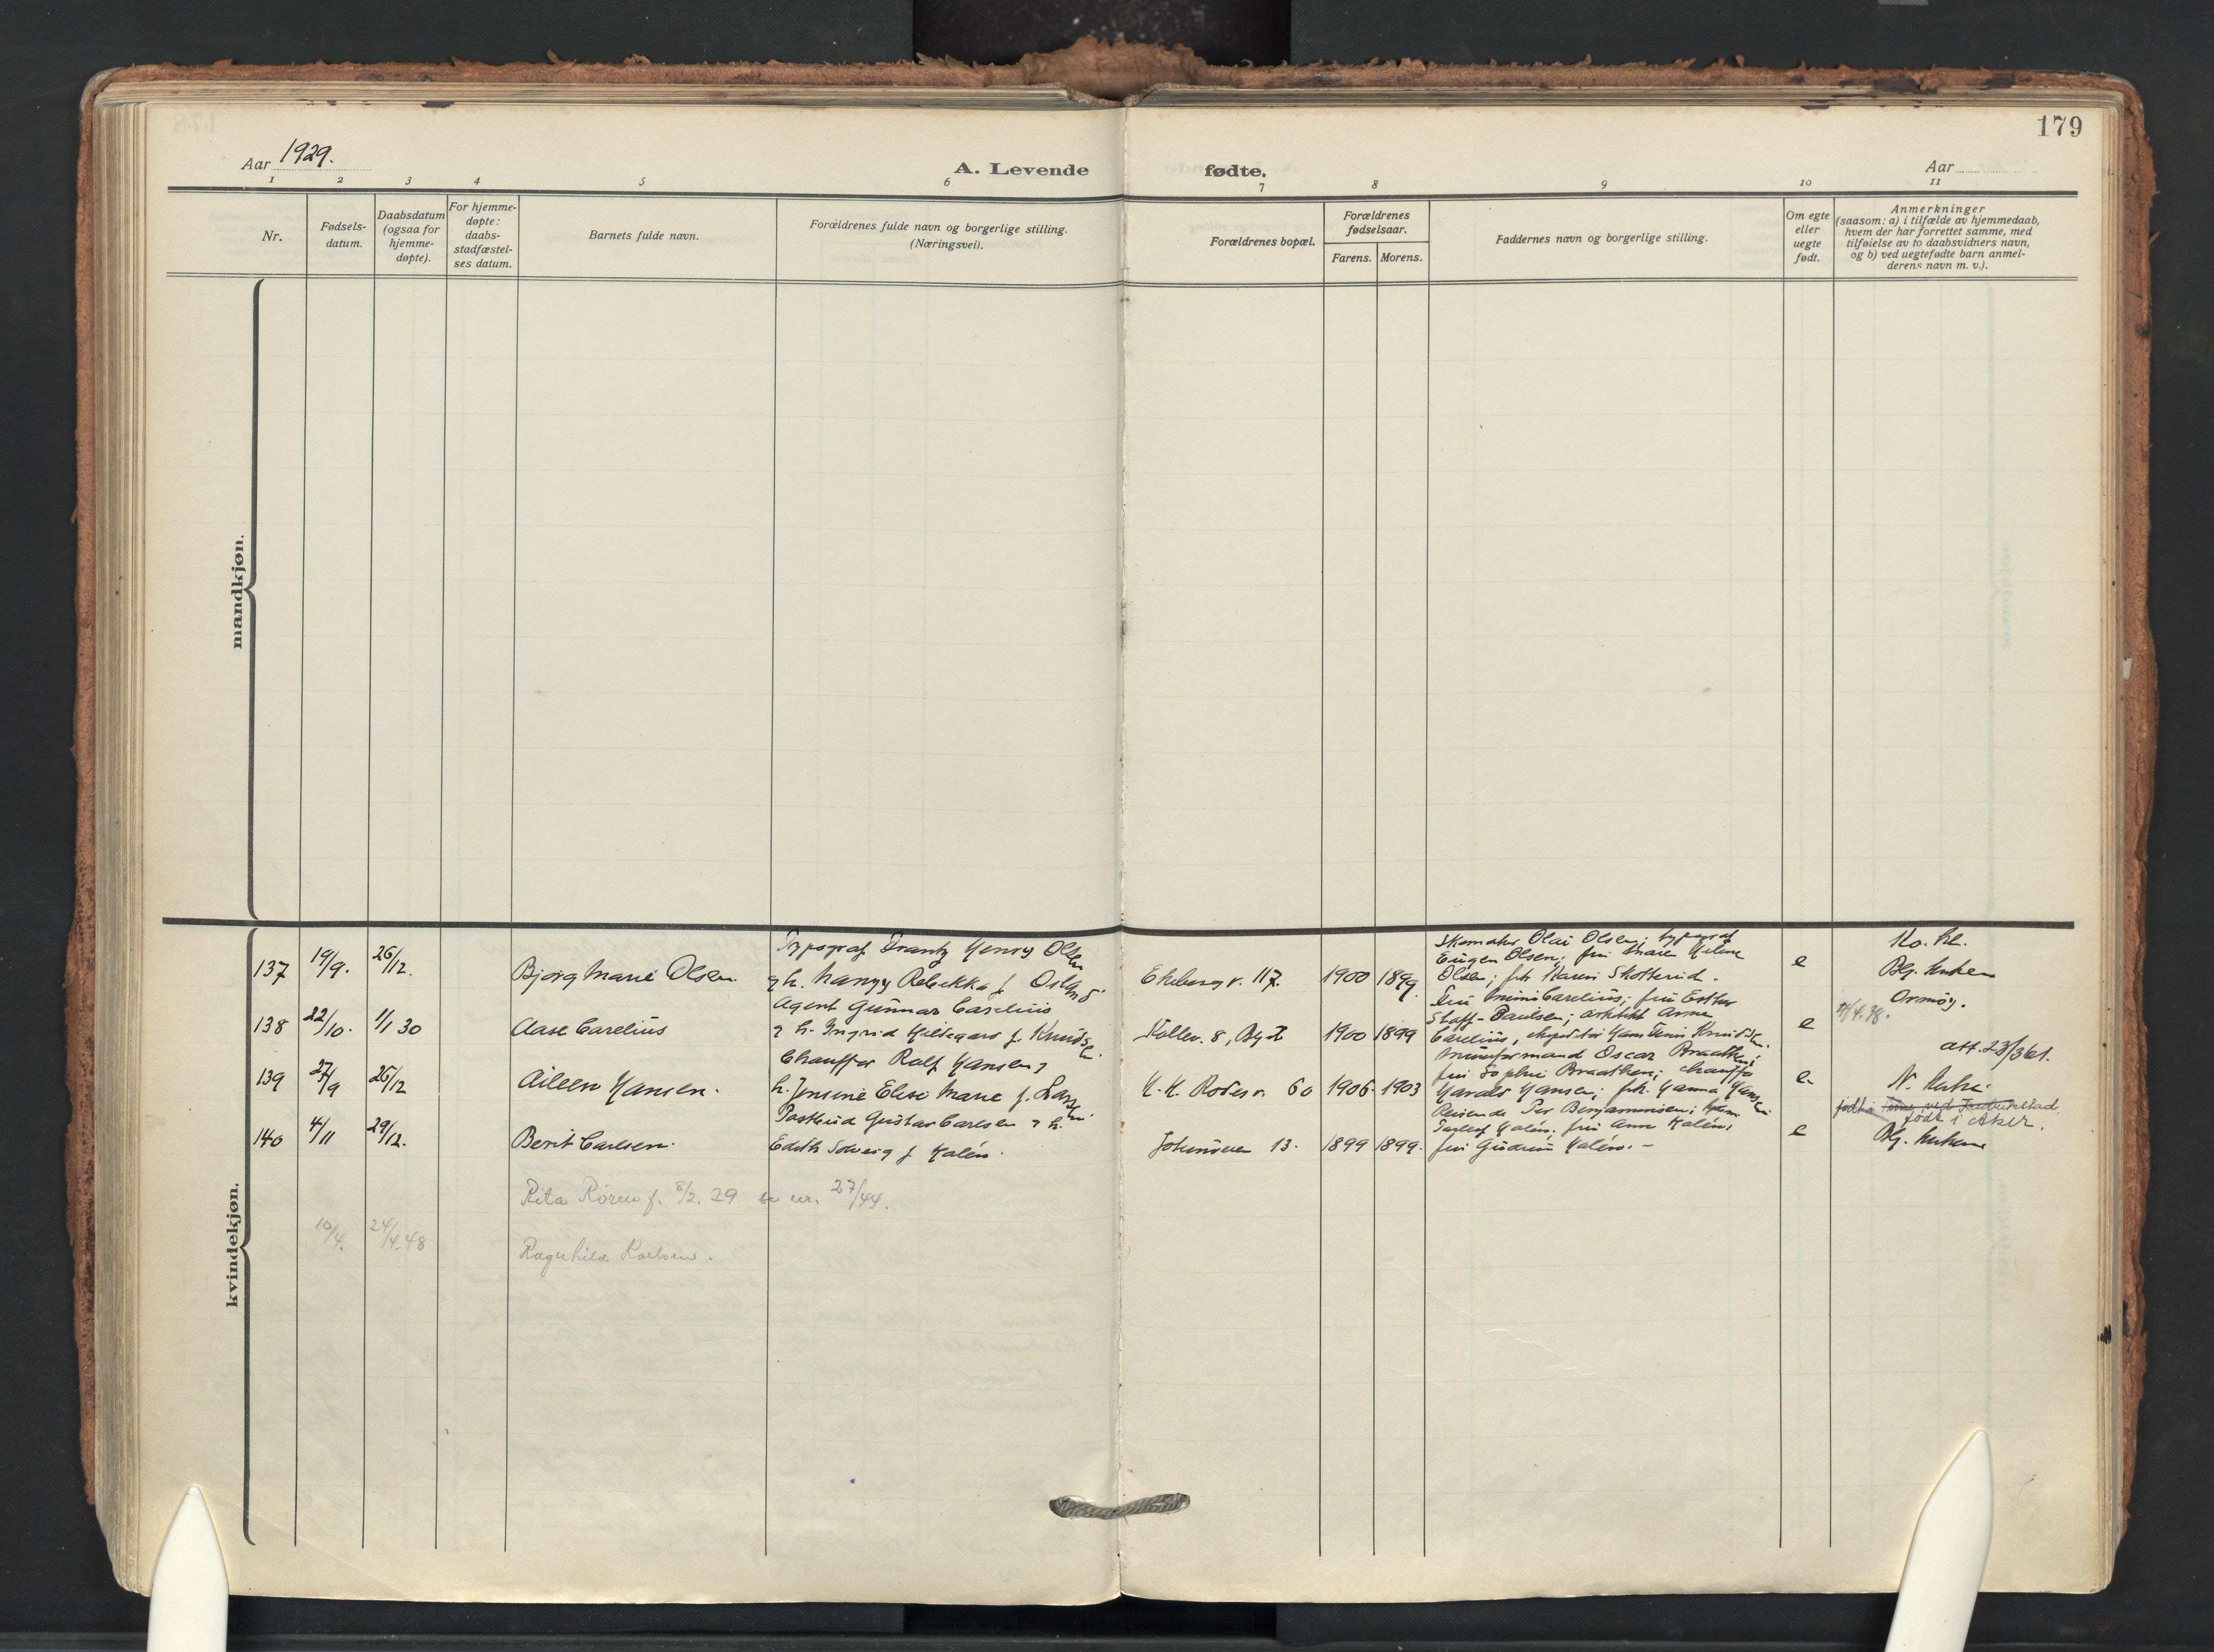 179
Aar 1929.
A. Levende fødte.
Aar
1 2 3 4 5 6 7 8 9 10 11
Nr.
Fødsels-
datum.
Daabsdatum
(ogsaa for
hjemme-
døpte).
For hjemme-
døpte:
daabs-
stadfæstel-
ses datum.
Barnets fulde navn.
Forældrenes fulde navn og borgerlige stilling.
(Næringsvei).
Forældrenes bopæl.
Forældrenes
fødselsaar.
Farens. Morens.
Faddernes navn og borgerlige stilling.
Om egte
eller
uegte
født.
Anmerkninger
(saasom: a) i tilfælde av hjemmedaab,
hvem der har forrettet samme, med
tilføielse av to daabsvidners navn,
og b) ved uegtefødte barn anmel-
derens navn m. v.).
mandkjøn.
kvindekjøn.
137 19/9. 26/12. Bjørg Marie Olsen
Typograf Frantz Henry Olsen
Rebekka f.
Ekeberg v. 117. 1900 1899
Olai Olsen; typograf
Eugen Olsen; fru Maren Helene
Olsen; frk Karen Skotterud.
e
138 22/10. 1/1 30 Aase Carelius
Agent Gunnar Carelius
& h. Ingrid Hildegard f. Knudsen.
8, 1900 1899
Fru Mimi Carelius; fru Esther
Staff-Paulsen; arkitekt Arne
Carelius,
e
Ormøy.
att. 23/3 61.
139 27/9 26/12 Aileen Hansen.
Chauffør Rolf Hansen &
h. Jensine Elise Marie f.
60 1906 1903
Oscar Braathen;
fru Sophie Braathen; chauffør
Harald Hansen; frk. Hanna Hansen
e
N.
140 4/11 29/12. Berit Carlsen.
Postbud Gustav Carlsen & h.
Edith Solveig f. Halén.
13. 1899 1899.
Reisende Per Benjaminsen;
Halén; fru Anna Halén;
fru Gudrun Halén. -
e
født i Aker.
Rita Rören f. 8/2. 29 se nr. 27/44.
10/4. 24/4.48 Ragnhild Karlsen.